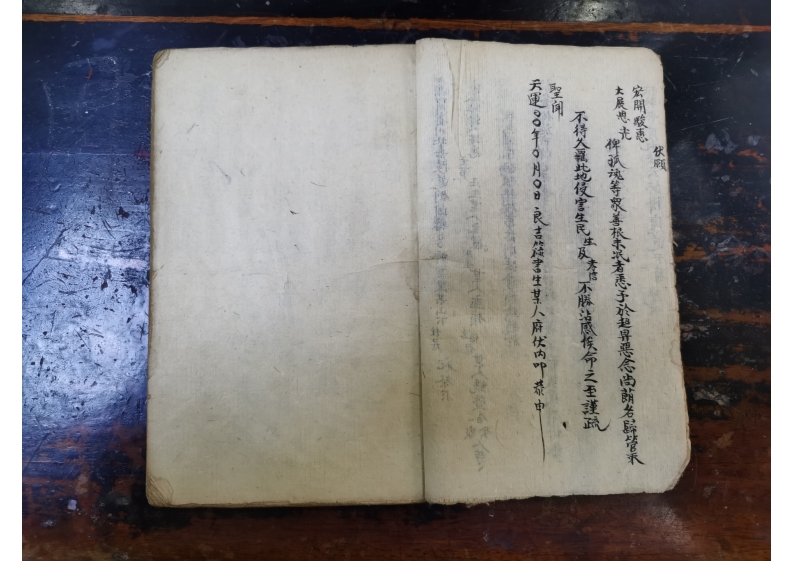 伏願
宏開駿惠
大展恩光
俾孤魂等眾善根未泯者悉予於超昇惡念尚萌名歸管束
不得久羈此地侵害生民生及不勝沾感俟命之至謹疏
聖聞
天運〇〇年〇月〇日良吉篆書生某人麻伏內叩恭申